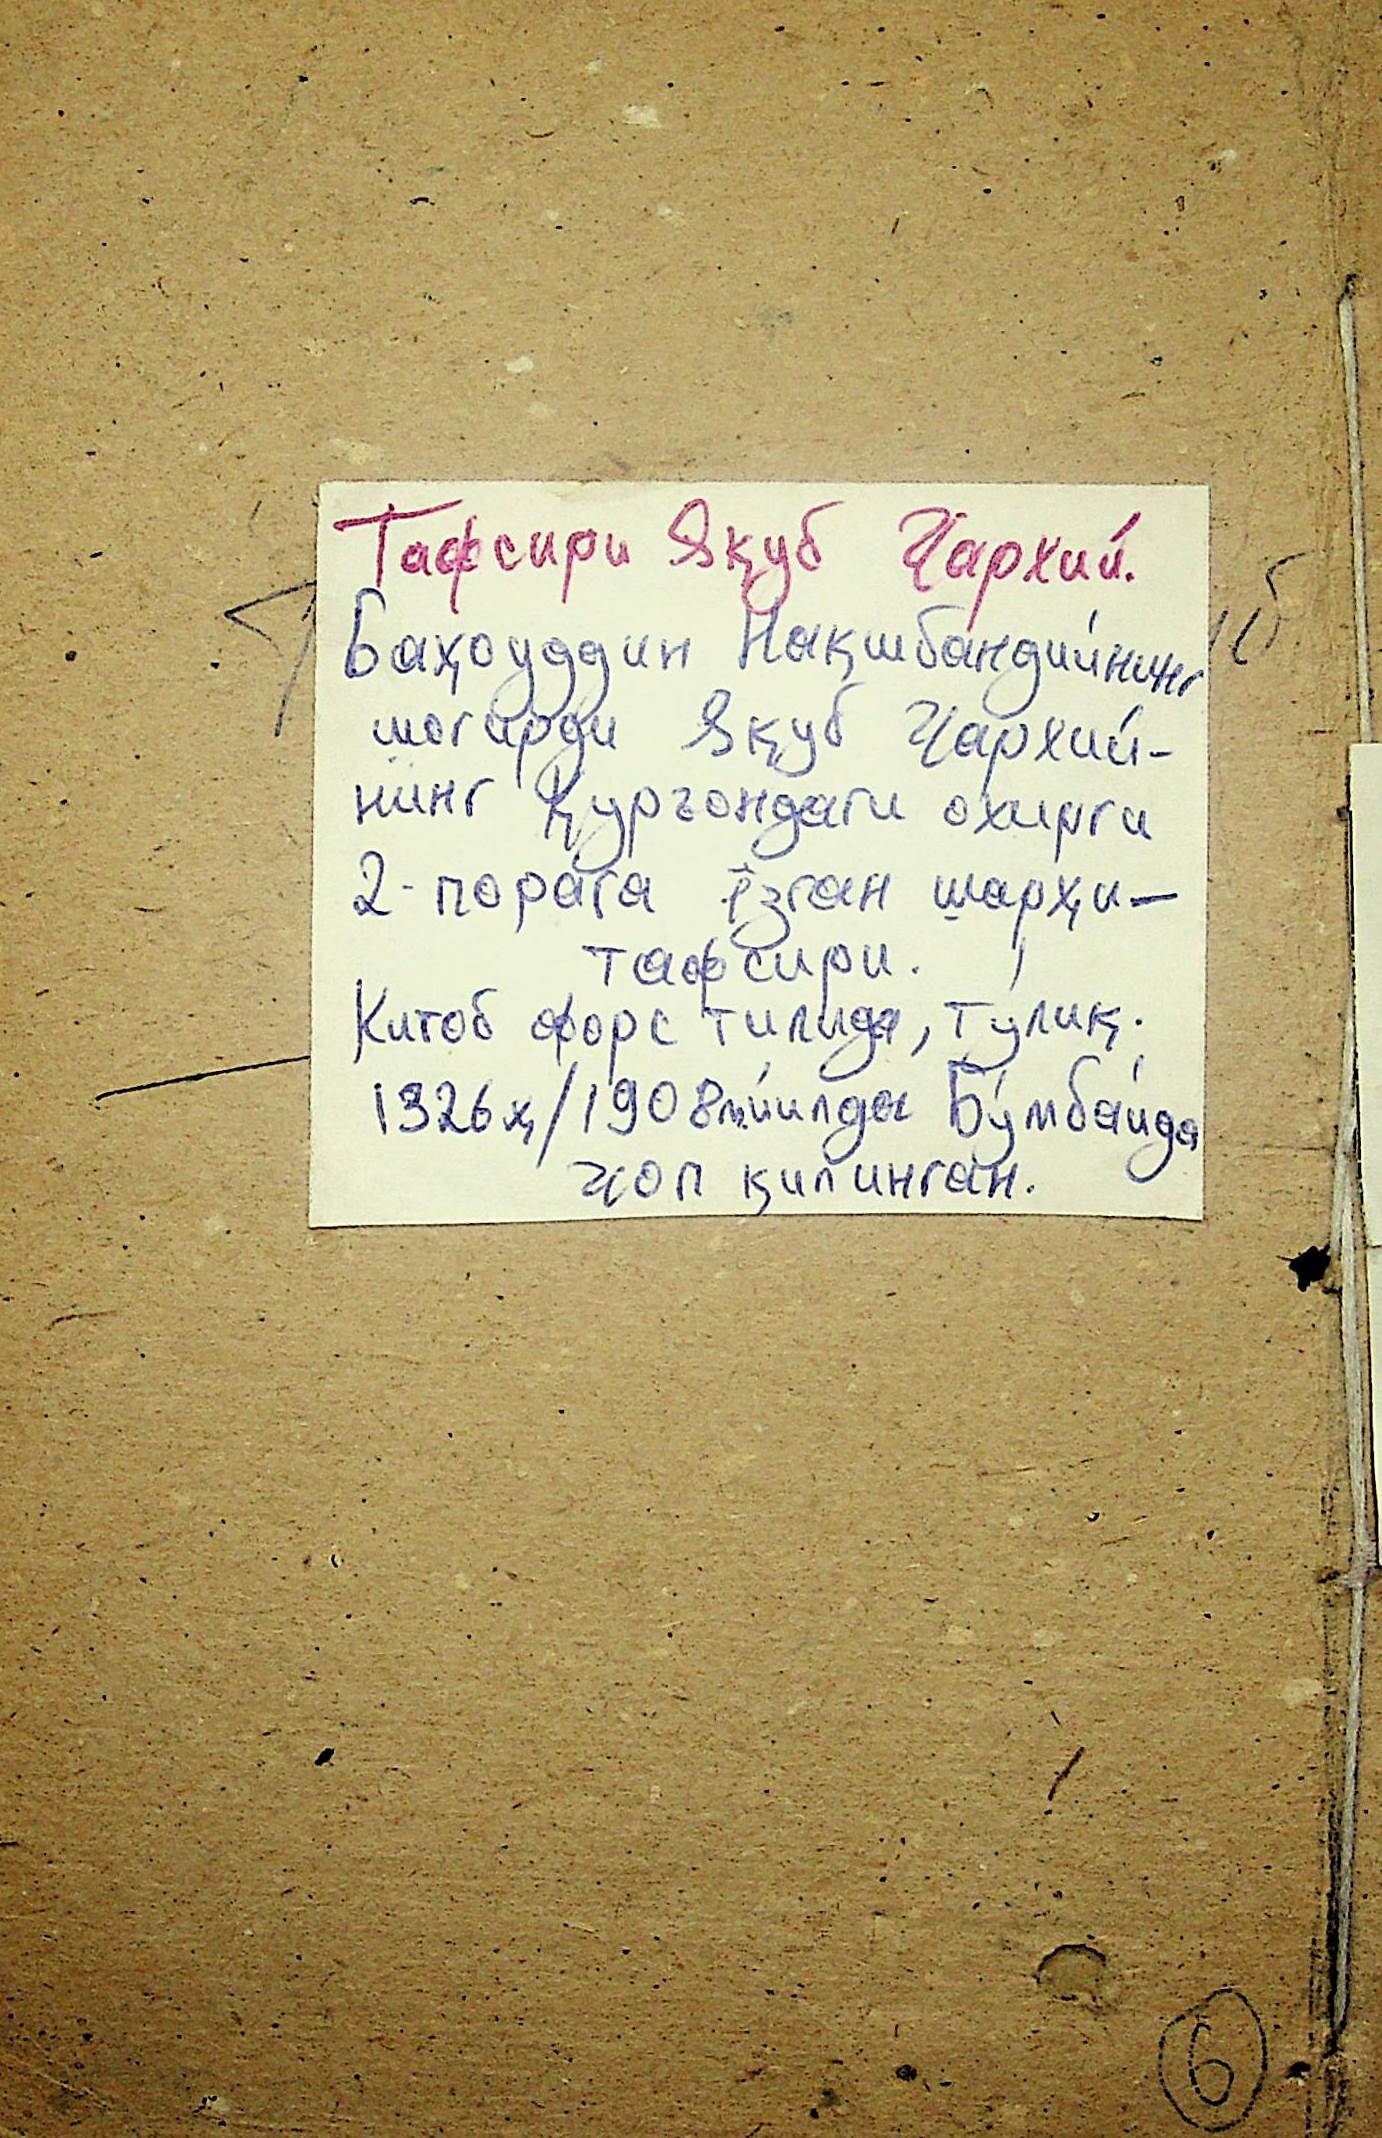 Тафсири Яқуб Чархий.
Баҳоуддин Нақшбандийнинг
шогирди Яқуб Чархий-
нинг Қуръондаги охирги
2-порага ёзган шарҳи-
тафсири.
Китоб форс тилида, тўлиқ.
1326ҳ/1908м.йилда Бўмбайда
чоп қилинган.
6